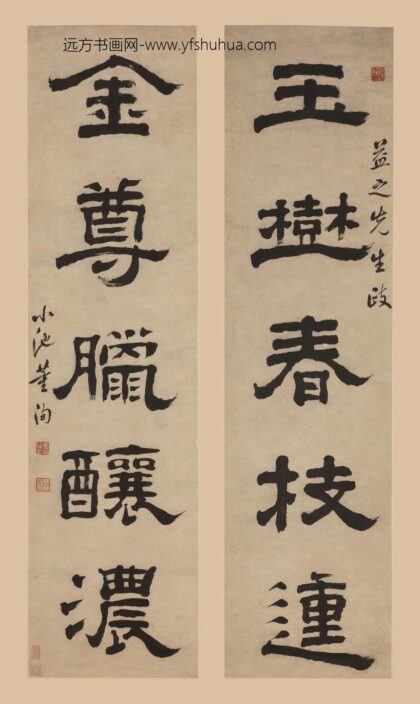 远方书画网-www.yfshuhua.com
玉樹春枝𨔝
益之先生政
金尊臘釀濃
小池董洵